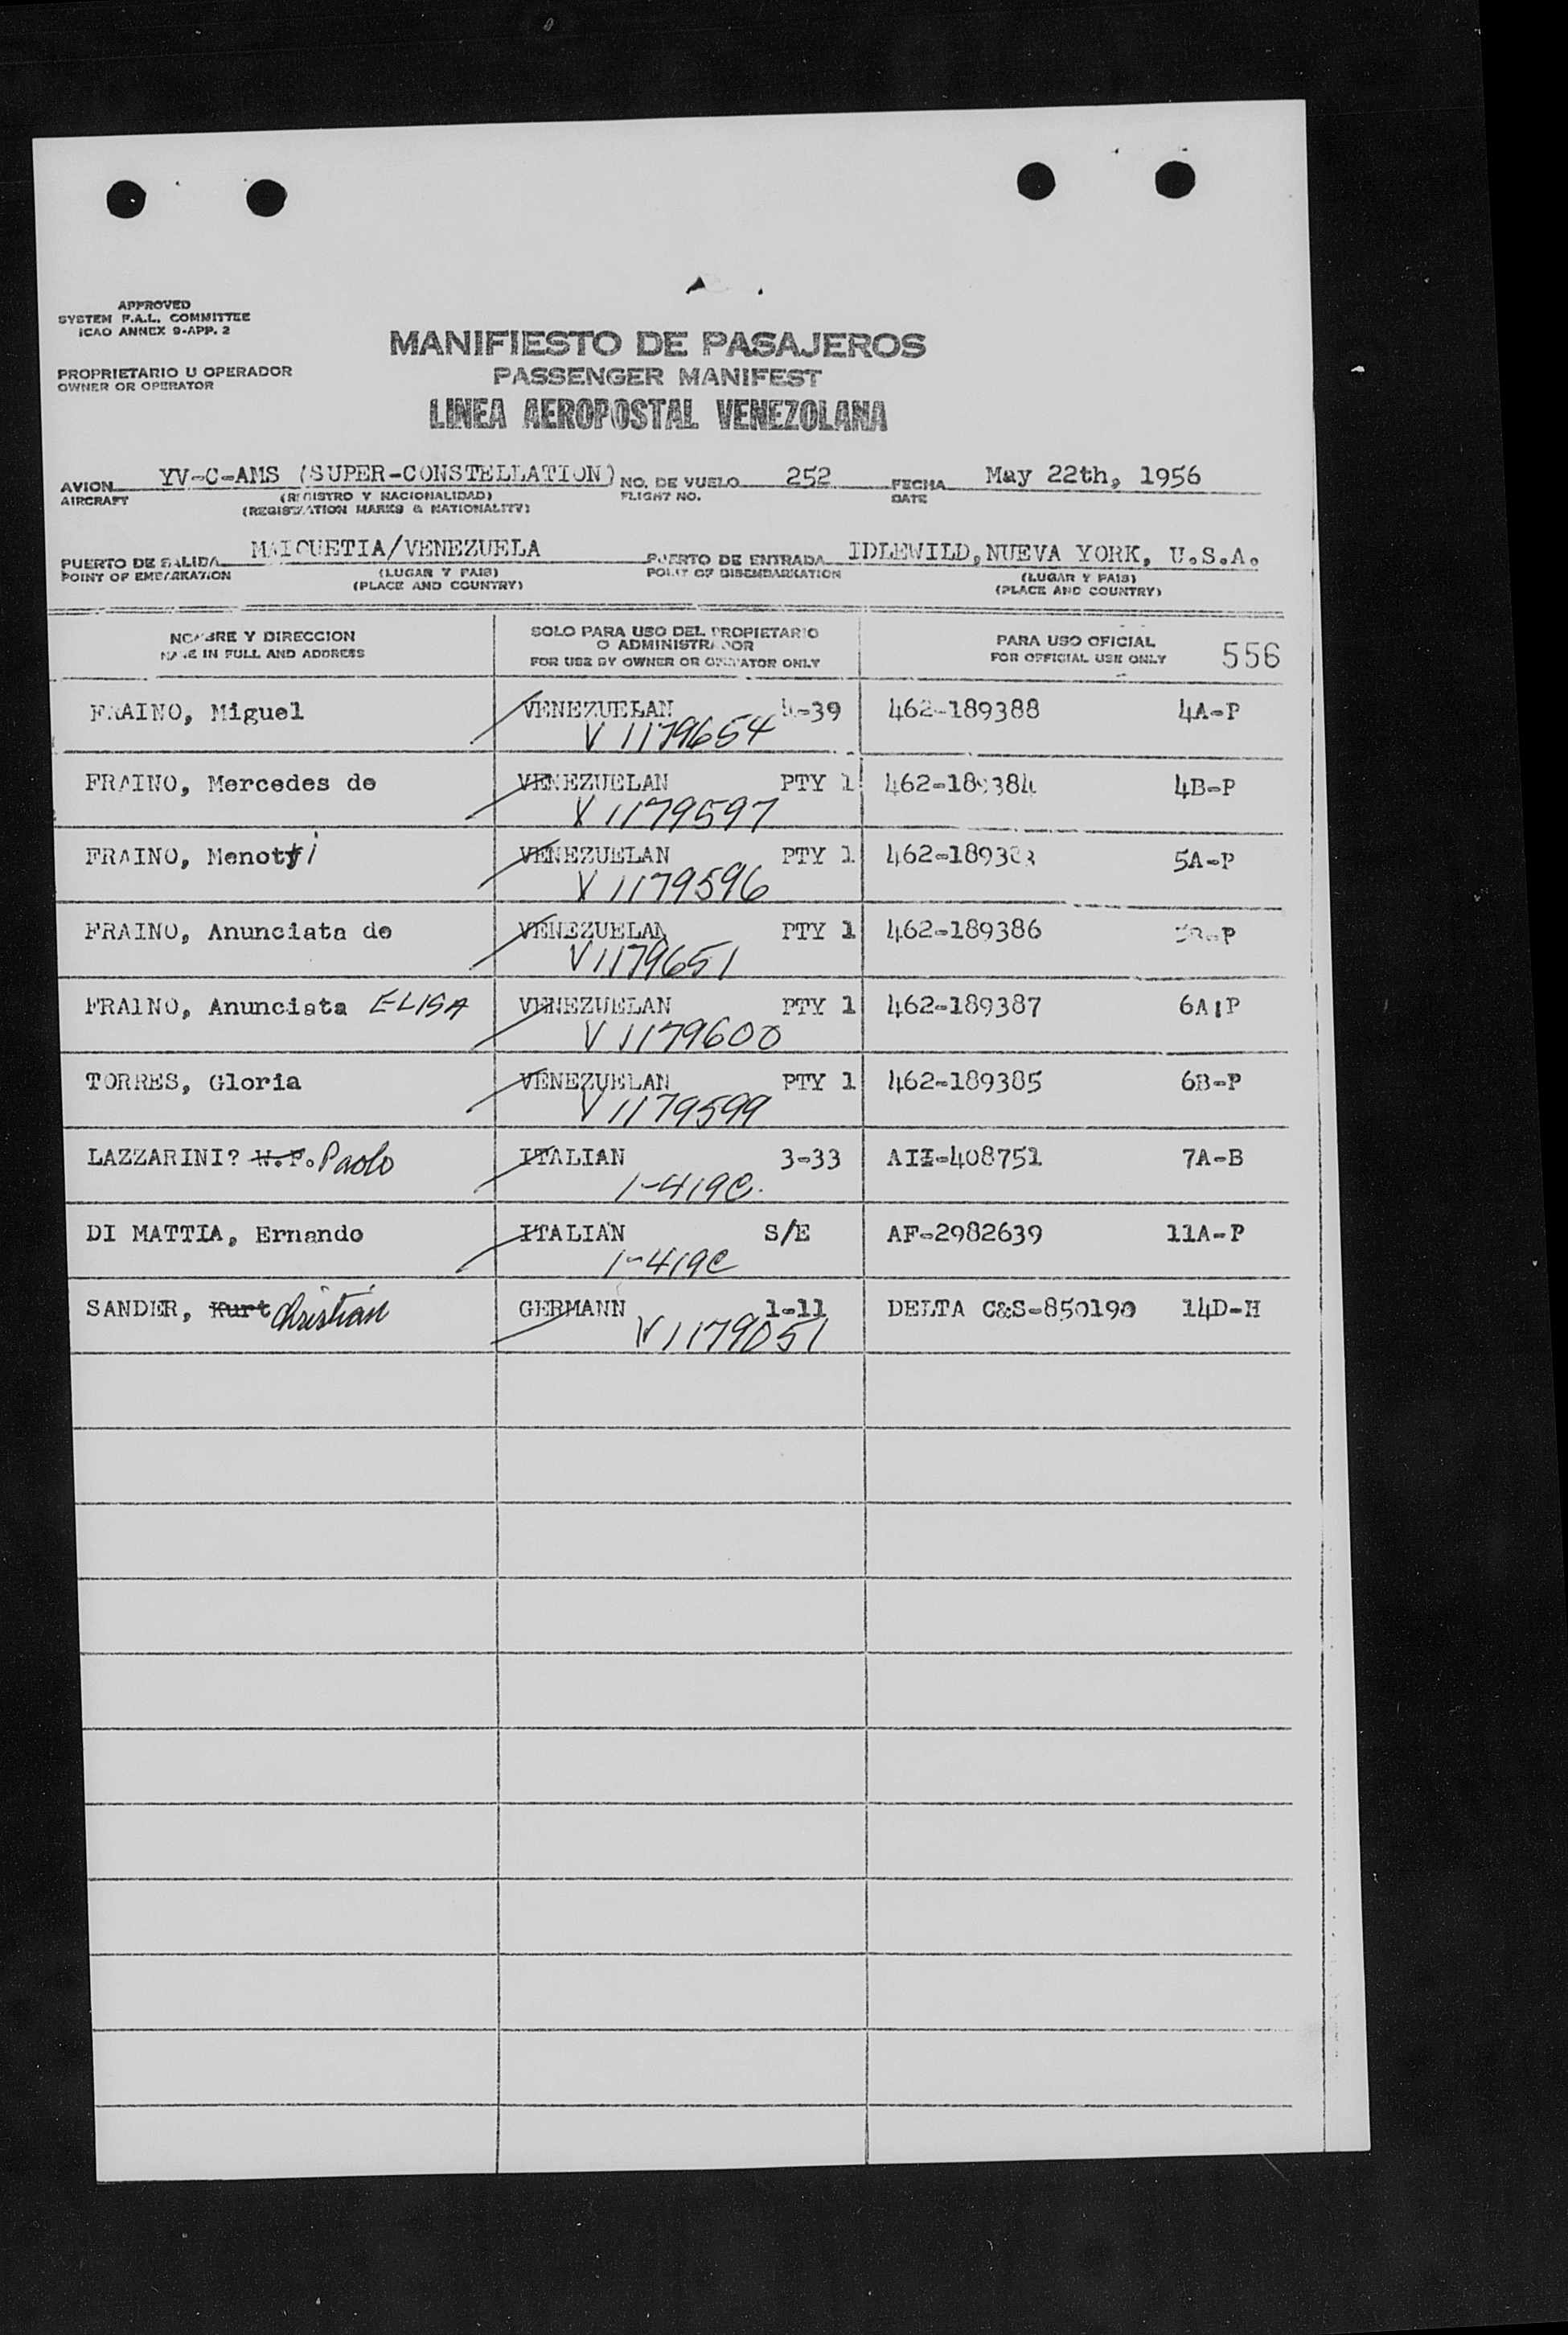 APPROVED
SYSTEM F.A.L. COMMITTEE
ICAO ANNEX 9-APP. 2
MANIFIESTO DE PASAJEROS
PROPRIETARIO U OPERADOR
OWNER OR OPERATOR
PASSENGER MANIFEST
LINEA AEROPOSTAL VENEZOLANA
AVION YV-C-AMS (SUPER-CONSTELLATION) NO. DE VUELO 252 FECHA May 22th, 1956
AIRCRAFT (REGISTRO Y NACIONALIDAD) FLIGHT NO. DATE
(REGISTRATION MARKS & NATIONALITY)
PUERTO DE SALIDA MAIQUETIA/VENEZUELA PUERTO DE ENTRADA IDLEWILD, NUEVA YORK, U.S.A.
POINT OF EMBARKATION (LUGAR Y PAIS) POINT OF DISEMBARKATION (LUGAR Y PAIS)
(PLACE AND COUNTRY) (PLACE AND COUNTRY)
NOMBRE Y DIRECCION
NAME IN FULL AND ADDRESS
SOLO PARA USO DEL PROPIETARIO
O ADMINISTRADOR
FOR USE BY OWNER OR OPERATOR ONLY
PARA USO OFICIAL
FOR OFFICIAL USE ONLY
556
FRAINO, Miguel VENEZUELAN 4-39 462-189388 4A-P
V 1179654
FRAINO, Mercedes de VENEZUELAN PTY 1 462-189384 4B-P
V 1179597
FRAINO, Menotti VENEZUELAN PTY 1 5A-P
V 1179596
FRAINO, Anunciata de VENEZUELAN PTY 1 462-189386
V 1179651
FRAINO, Anunciata ELISA VENEZUELAN PTY 1 462-189387 6A-P
V 1179600
TORRES, Gloria VENEZUELAN PTY 1 462-189385 6B-P
V 1179599
LAZZARINI? W.F. Paolo ITALIAN 3-33 AII-408751 7A-B
1-419C.
DI MATTIA, Ernando ITALIAN S/E AF-2982639 11A-P
1-419C
SANDER, Kurt Christian GERMANN 1-11 DELTA C&S-850190 14D-H
V 1179051